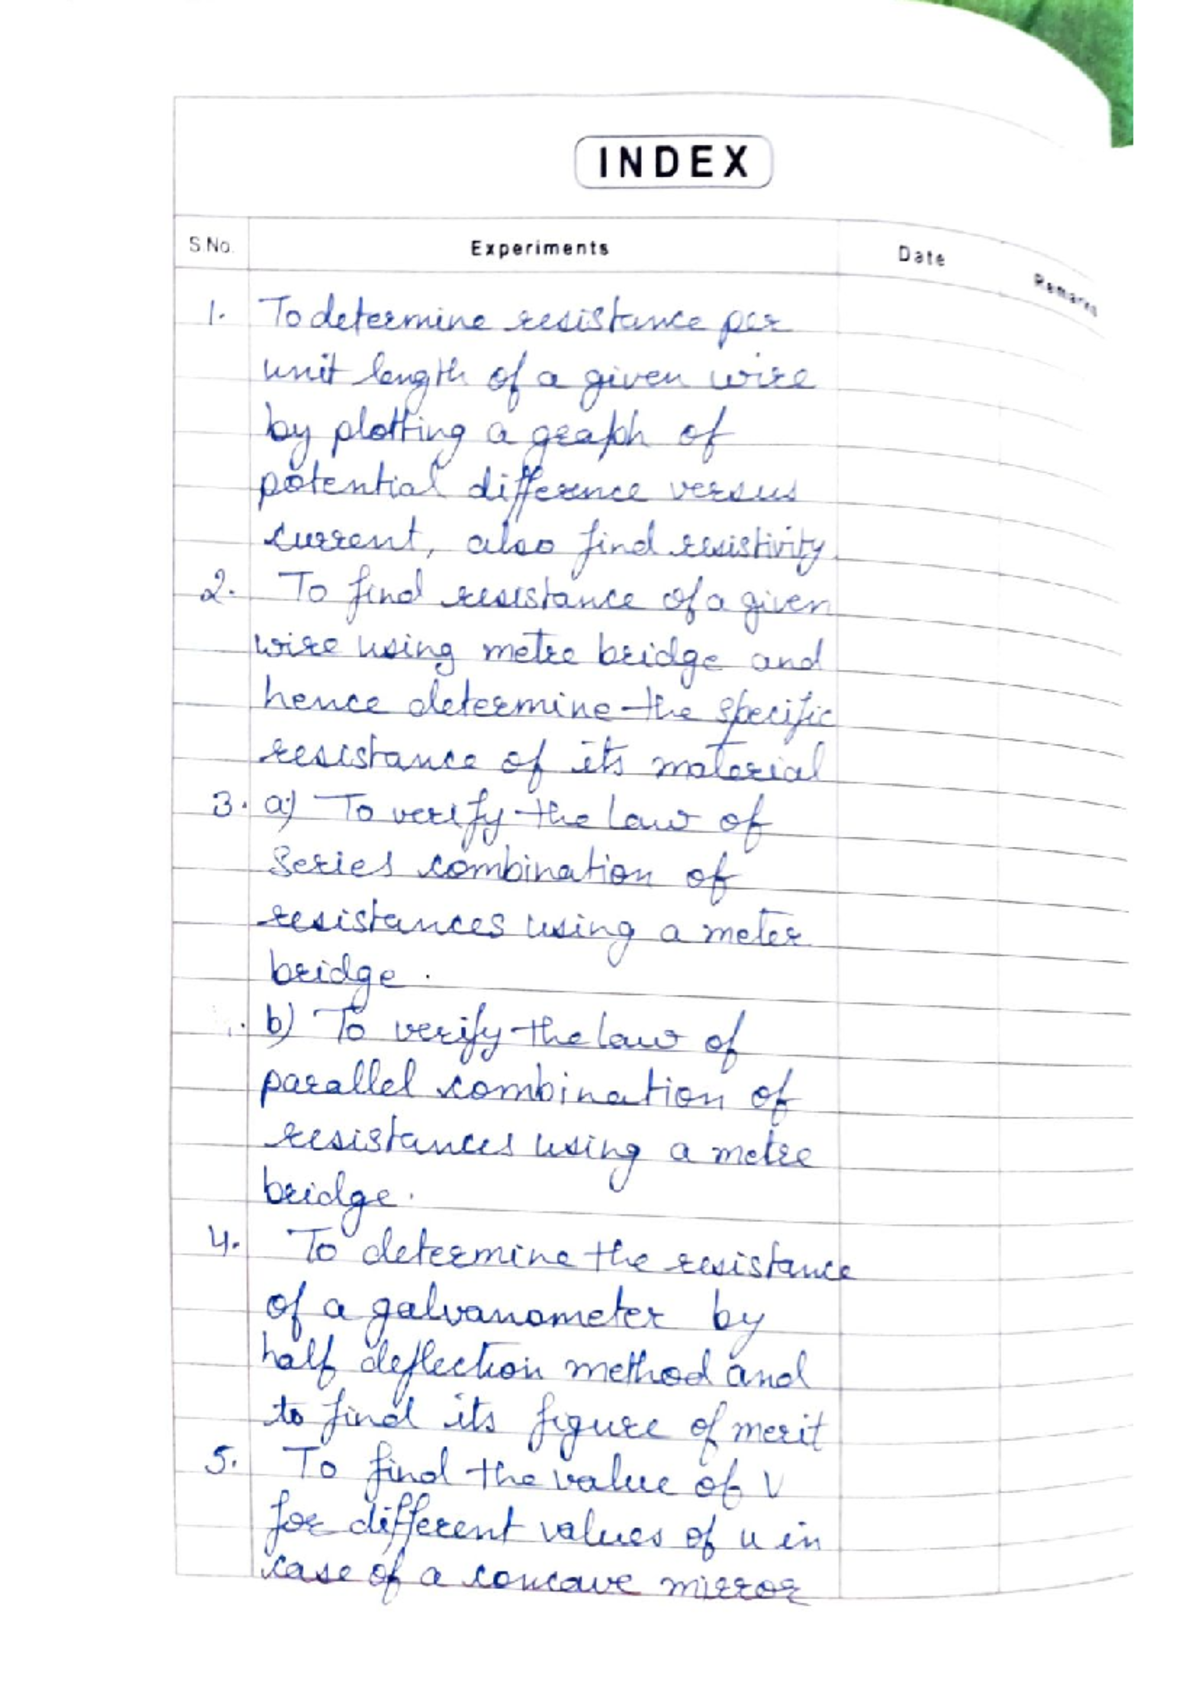 INDEX
S.No. Experiments Date Remarks
1. To determine resistance per
unit length of a given wire
by plotting a graph of
potential difference versus
current, also find resistivity.
2. To find resistance of a given
wire using metre bridge and
hence determine the specific
resistance of its material
3. a) To verify the law of
Series combination of
resistances using a meter
bridge.
b) To verify the law of
parallel combination of
resistances using a metre
bridge.
4. To determine the resistance
of a galvanometer by
half deflection method and
to find its figure of merit
5. To find the value of V
for different values of u in
case of a concave mirror